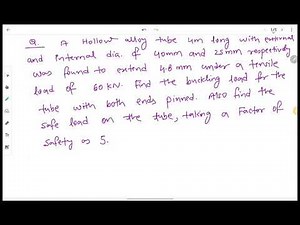 Q. A Hollow alloy tube 4m long with external
and internal dia. of 40mm and 25mm respectively
was found to extend 4.8 mm under a tensile
load of 60 KN. Find the buckling load for the
tube with both ends pinned. Also find the
safe load on the tube, taking a Factor of
Safety as 5.